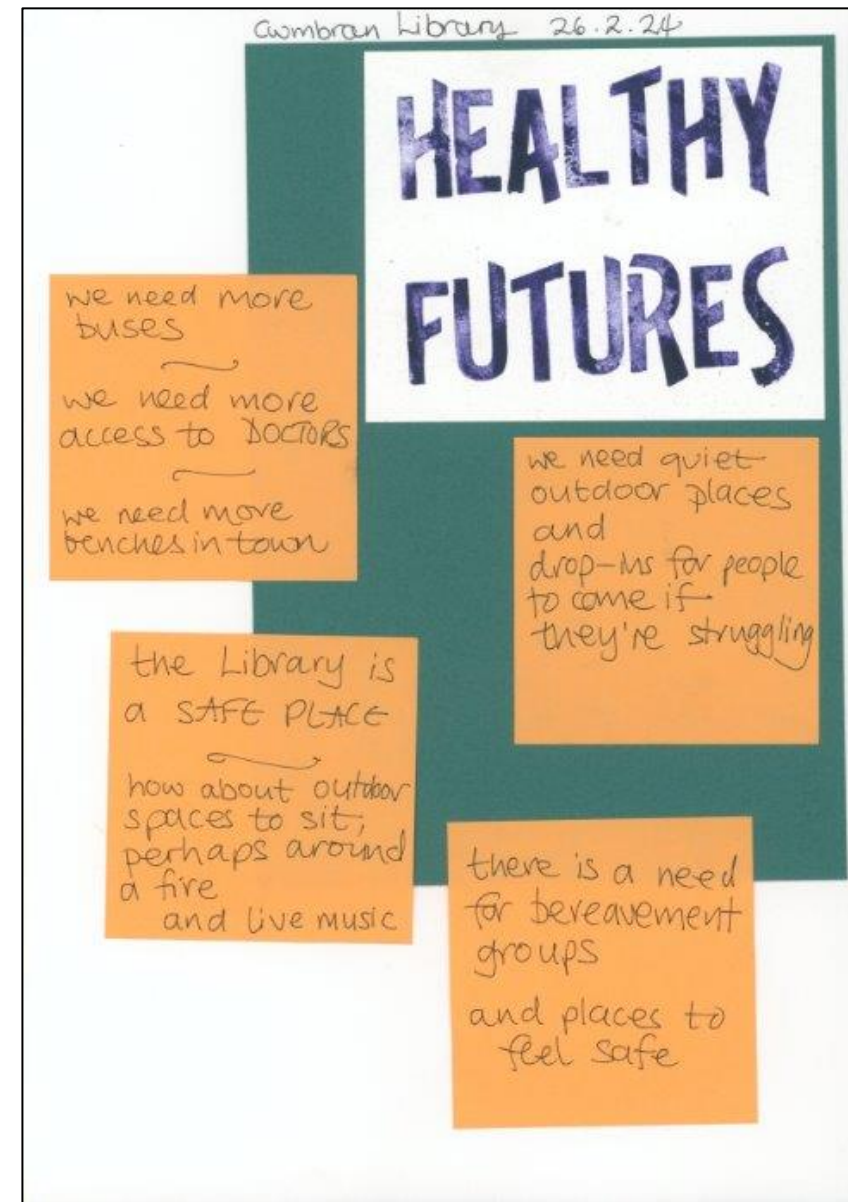 Cwmbran Library 26.2.24
HEALTHY
FUTURES
we need more
buses
we need more
access to DOCTORS
we need more
benches in town
we need quiet
outdoor places
and
drop-ins for people
to come if
they're struggling
the Library is
a SAFE PLACE
how about outdoor
spaces to sit,
perhaps around
a fire
and live music
there is a need
for bereavement
groups
and places to
feel safe